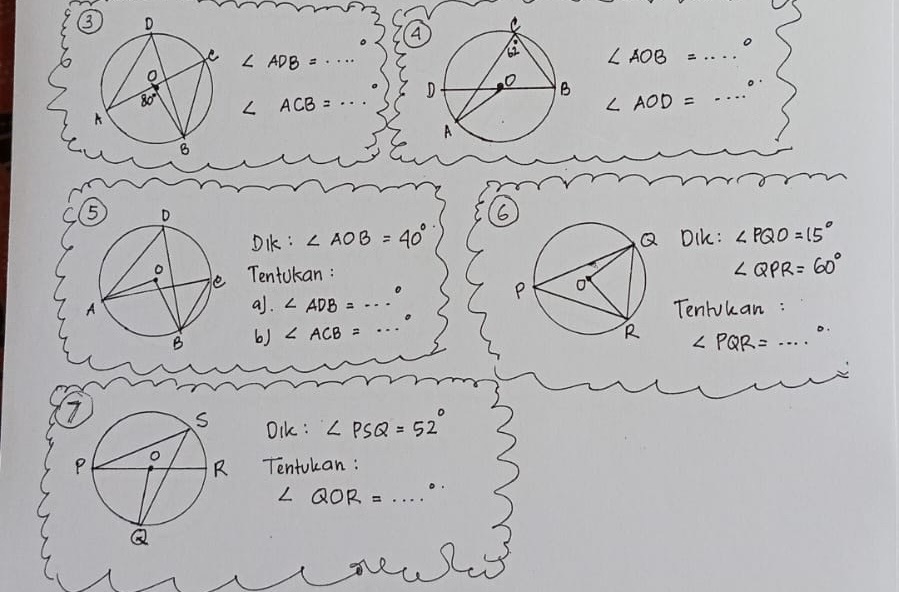 3
D
C
O
80°
A
B
∠ ADB = ....°
∠ ACB = ...°
4
C
62°
D
O
B
A
∠ AOB = ....°
∠ AOD = ....°
5
D
O
A
C
B
Dik : ∠ AOB = 40°
Tentukan :
a). ∠ ADB = ....°
b) ∠ ACB = ...°
6
Q
P
O
R
Dik : ∠ PQO = 15°
∠ QPR = 60°
Tentukan :
∠ PQR = ....°
7
S
P
O
R
Q
Dik : ∠ PSQ = 52°
Tentukan :
∠ QOR = ....°